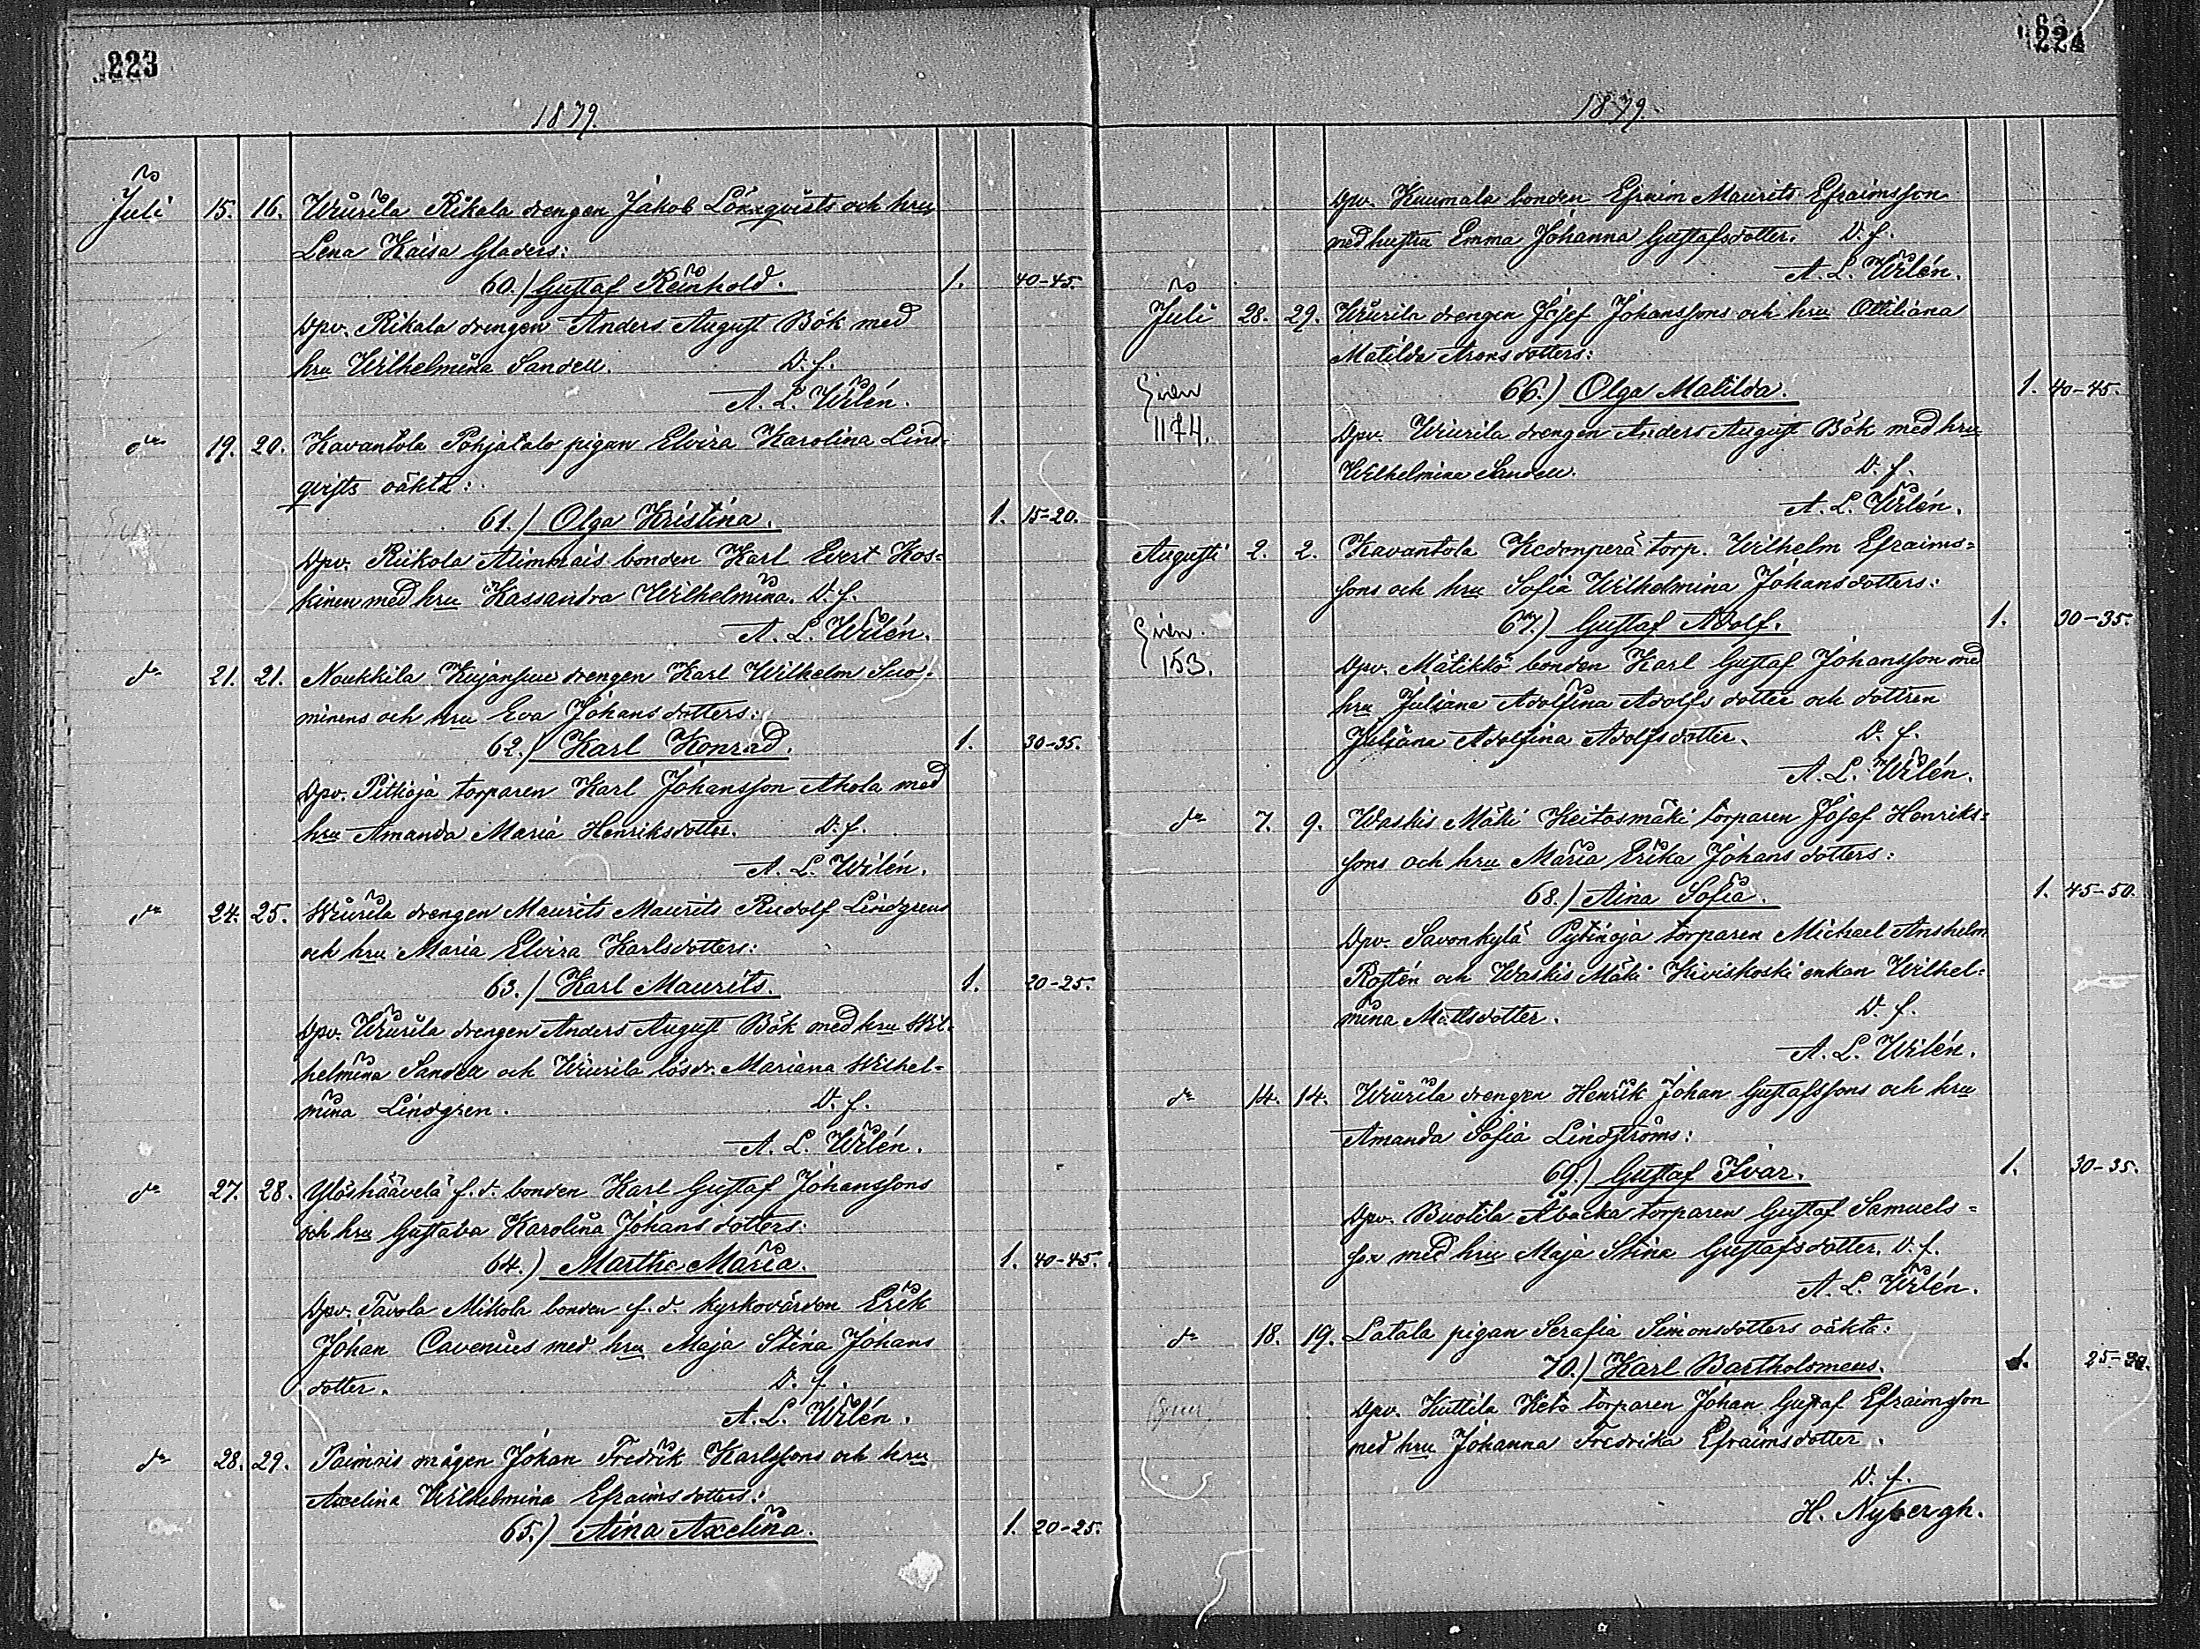 223
1879.
Juli 15. 16. Wiurila Rikala drengen Jakob Lönnqvists och hru
Lena Kaisa Gladers:
60.) Gustaf Reinhold. 1. 40-45.
Dpv. Rikala drengen Anders August Bök med
hru Wilhelmina Sandell. D. f.
A. L. Wilén.
d:o 19. 20. Kavantola Pohjatalo pigan Elvira Karolina Lind-
qvists oäkta:
61.) Olga Kristina. 1. 15-20.
Dpv. Rikola Aimmais bonden Karl Evert Kos-
kinen med hru Kassandra Wilhelmina. D. f.
A. L. Wilén.
d:o 21. 21. Noukkila Kujanpuu drengen Karl Wilhelm Suo-
minens och hru Eva Johansdotters:
62.) Karl Konrad. 1. 30-35.
Dpv. Pitkoja torparen Karl Johansson Ahola med
hru Amanda Maria Henriksdotter. D. f.
A. L. Wilén.
d:o 24. 25. Wiurila drengen Maurits Maurits Rudolf Lindgrens
och hru Maria Elvira Karlsdotters:
63.) Karl Maurits. 1. 20-25.
Dpv. Wiurila drengen Anders August Bök med hru Wil-
helmina Sandell och Wiurila lösdr. Mariana Wilhel-
mina Lindgren. D. f.
A. L. Wilén.
d:o 27. 28. Ylöshäävelä f. d. bonden Karl Gustaf Johanssons
och hru Gustava Karolina Johansdotters:
64.) Martha Maria. 1. 40-45.
Dpv. Tavola Mikola bonden f. d. kyrkovärden Erik
Johan Cavenius med hru Maja Stina Johans
dotter. D. f.
A. L. Wilén.
d:o 28. 29. Paimris mågen Johan Fredrik Karlssons och hru
Axelina Wilhelmina Efraimsdotters:
65.) Aina Axelina. 1. 20-25.
224
1879.
Dpv. Kuumala bonden Efraim Maurits Efraimsson
med hustru Emma Johanna Gustafsdotter. D. f.
A. L. Wilén.
Juli 28. 29. Wiurila drengen Josef Johanssons och hru Ottiliana
Matilda Aronsdotters:
66.) Olga Matilda. 1. 40-45.
1174.
Dpv. Wiurila drengen Anders August Bök med hru
Wilhelmina Sandell. D. f.
A. L. Wilén.
Augusti 2. 2. Kavantola Kedonperä torp. Wilhelm Efraims-
sons och hru Sofia Wilhelmina Johansdotters:
67.) Gustaf Adolf. 1. 30-35.
153.
Dpv. Mätikkö bonden Karl Gustaf Johansson med
hru Juliana Adolfina Adolfsdotter och dottren
Juliana Adolfina Adolfsdotter. D. f.
A. L. Wilén.
d:o 7. 9. Waskis Mäki Keitosmäki torparen Josef Henriks-
sons och hru Maria Erika Johansdotters:
68.) Aina Sofia. 1. 45-50.
Dpv. Savonkylä Pytinoja torparen Michael Anshelm
Rostén och Waskis Mäki Kiviskoski enkan Wilhel-
mina Mattsdotter. D. f.
A. L. Wilén.
d:o 14. 14. Wiurila drengen Henrik Johan Gustafssons och hru
Amanda Sofia Lindströms:
69.) Gustaf Ivar. 1. 30-35.
Dpv. Buotila Åbacka torparen Gustaf Samuels-
son med hru Maja Stina Gustafsdotter. D. f.
A. L. Wilén.
d:o 18. 19. Latala pigan Serafia Simonsdotters oäkta:
70.) Karl Bartholomeus. 1. 25-30.
Dpv. Kuttila Keto torparen Johan Gustaf Efraimsson
med hru Johanna Fredrika Efraimsdotter.
D. f.
H. Nybergh.